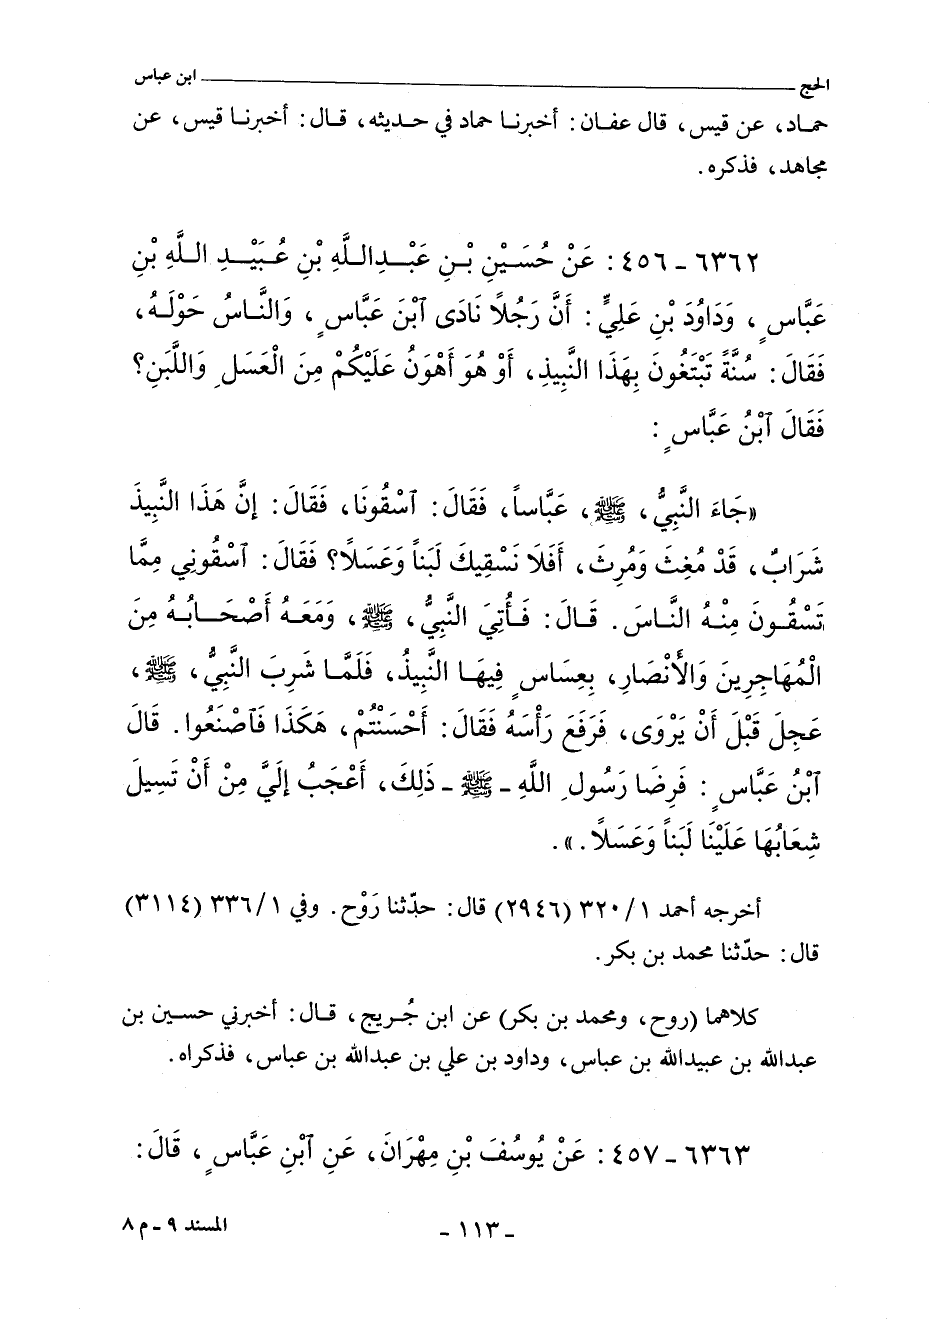 الحج ـــــــــ ابن عباس
حماد، عن قيس، قال عفان: أخبرنا حماد في حديثه، قال: أخبرنا قيس، عن
مجاهد، فذكره.
٦٣٦٢ ـ ٤٥٦: عَنْ حُسَيْنِ بْنِ عَبْدِاللَّهِ بْنِ عُبَيْدِ اللَّهِ بْنِ
عَبَّاسٍ، وَدَاوُدَ بْنِ عَلِيٍّ: أَنَّ رَجُلاً نَادَى ٱبْنَ عَبَّاسٍ، وَالنَّاسُ حَوْلَهُ،
فَقَالَ: سُنَّةً تَبْتَغُونَ بِهَذَا النَّبِيذِ، أَوْ هُوَ أَهْوَنُ عَلَيْكُمْ مِنَ الْعَسَلِ وَاللَّبَنِ؟
فَقَالَ ٱبْنُ عَبَّاسٍ:
«جَاءَ النَّبِيُّ، ﷺ، عَبَّاساً، فَقَالَ: ٱسْقُونَا، فَقَالَ: إِنَّ هَذَا النَّبِيذَ
شَرَابٌ، قَدْ مُغِثَ وَمُرِثَ، أَفَلَا نَسْقِيكَ لَبَناً وَعَسَلاً؟ فَقَالَ: ٱسْقُونِي مِمَّا
تَسْقُونَ مِنْهُ النَّاسَ. قَالَ: فَأُتِيَ النَّبِيُّ، ﷺ، وَمَعَهُ أَصْحَابُهُ مِنَ
الْمُهَاجِرِينَ وَالْأَنْصَارِ، بِعِسَاسٍ فِيهَا النَّبِيذُ، فَلَمَّا شَرِبَ النَّبِيُّ، ﷺ،
عَجِلَ قَبْلَ أَنْ يَرْوَى، فَرَفَعَ رَأْسَهُ فَقَالَ: أَحْسَنْتُمْ، هَكَذَا فَٱصْنَعُوا. قَالَ
ٱبْنُ عَبَّاسٍ: فَرِضَا رَسُولِ اللَّهِ ـ ﷺ ـ ذَلِكَ، أَعْجَبُ إِلَيَّ مِنْ أَنْ تَسِيلَ
شِعَابُهَا عَلَيْنَا لَبَناً وَعَسَلاً.».
أخرجه أحمد ١/ ٣٢٠ (٢٩٤٦) قال: حدّثنا رَوْح. وفي ١/ ٣٣٦ (٣١١٤)
قال: حدّثنا محمد بن بكر.
كلاهما (روح، ومحمد بن بكر) عن ابن جُريج، قال: أخبرني حسين بن
عبدالله بن عبيدالله بن عباس، وداود بن علي بن عبدالله بن عباس، فذكراه.
٦٣٦٣ ـ ٤٥٧: عَنْ يُوسُفَ بْنِ مِهْرَانَ، عَنِ ٱبْنِ عَبَّاسٍ، قَالَ:
ـ ١١٣ ـ
المسند ٩ ـ م ٨